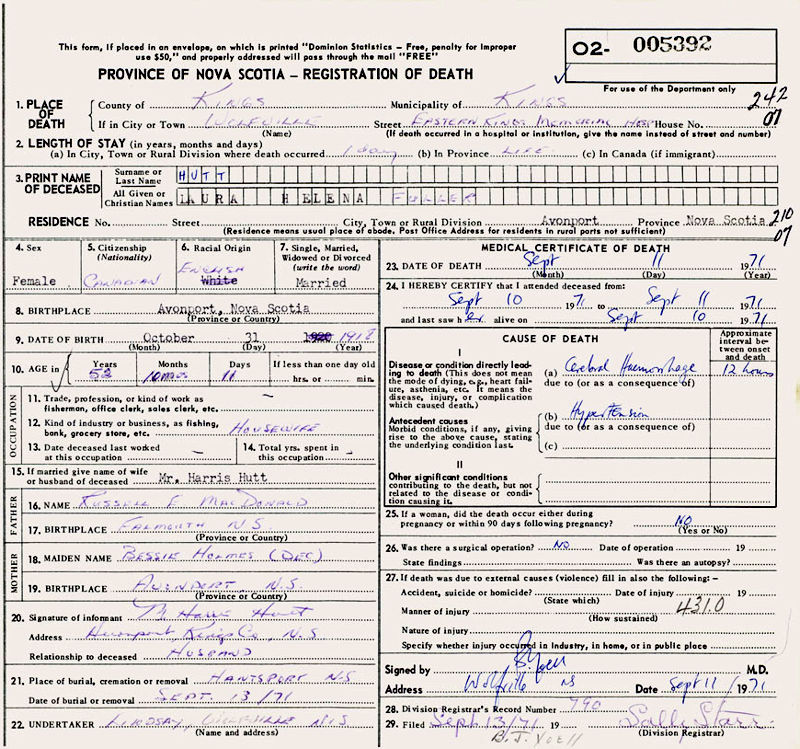 This form, if placed in an envelope, on which is printed "Dominion Statistics – Free, penalty for improper
use $50," and properly addressed will pass through the mail "FREE"
O2- 005392
PROVINCE OF NOVA SCOTIA – REGISTRATION OF DEATH
For use of the Department only
242
07
1. PLACE OF DEATH
County of KINGS Municipality of KINGS
If in City or Town Street EASTERN KINGS MEMORIAL HSP House No.
(Name) (If death occurred in a hospital or institution, give the name instead of street and number)
2. LENGTH OF STAY (in years, months and days)
(a) In City, Town or Rural Division where death occurred 1 day (b) In Province LIFE (c) In Canada (if immigrant)
3. PRINT NAME OF DECEASED
Surname or Last Name HUTT
All Given or Christian Names LAURA HELENA FULLER
RESIDENCE No. Street City, Town or Rural Division Avonport Province Nova Scotia 210
07
(Residence means usual place of abode. Post Office Address for residents in rural parts not sufficient)
4. Sex
Female
5. Citizenship (Nationality)
CANADIAN
6. Racial Origin
ENGLISH
White
7. Single, Married, Widowed or Divorced (write the word)
Married
8. BIRTHPLACE Avonport, Nova Scotia
(Province or Country)
9. DATE OF BIRTH October 31 1920 1918
(Month) (Day) (Year)
10. AGE in Years Months Days If less than one day old
52 10 mos 11 hrs. or min.
OCCUPATION
11. Trade, profession, or kind of work as fisherman, office clerk, sales clerk, etc. –
12. Kind of industry or business, as fishing, bank, grocery store, etc. HOUSEWIFE
13. Date deceased last worked at this occupation –
14. Total yrs. spent in this occupation –
15. If married give name of wife or husband of deceased Mr. Harris Hutt
FATHER
16. NAME RUSSELL F MACDONALD
17. BIRTHPLACE FALMOUTH N S
(Province or Country)
MOTHER
18. MAIDEN NAME BESSIE HOLMES (DEC)
19. BIRTHPLACE AVONPORT N.S
(Province or Country)
20. Signature of informant Harris Hutt
Address Avonport Kings Co., N.S
Relationship to deceased HUSBAND
21. Place of burial, cremation or removal HANTSPORT N.S
Date of burial or removal SEPT. 13/71
22. UNDERTAKER LINDSAY, N.S
(Name and address)
MEDICAL CERTIFICATE OF DEATH
23. DATE OF DEATH Sept 11 1971
(Month) (Day) (Year)
24. I HEREBY CERTIFY that I attended deceased from:
Sept 10 1971 to Sept 11 1971
and last saw her alive on Sept 10 1971
CAUSE OF DEATH
Approximate interval between onset and death
I
Disease or condition directly leading to death (This does not mean the mode of dying, e.g., heart failure, asthenia, etc. It means the disease, injury, or complication which caused death.)
(a) Cerebral Haemorrhage 12 hours
due to (or as a consequence of)
Antecedent causes
Morbid conditions, if any, giving rise to the above cause, stating the underlying condition last.
(b) Hypertension
due to (or as a consequence of)
(c)
II
Other significant conditions
contributing to the death, but not related to the disease or condition causing it.
25. If a woman, did the death occur either during pregnancy or within 90 days following pregnancy? NO
(Yes or No)
26. Was there a surgical operation? NO Date of operation 19
State findings Was there an autopsy?
27. If death was due to external causes (violence) fill in also the following: –
Accident, suicide or homicide? Date of injury 19
(State which)
Manner of injury 431.0
(How sustained)
Nature of injury
Specify whether injury occurred in Industry, in home, or in public place
Signed by B. Yoell M.D.
Address Wolfville NS Date Sept 11 / 1971
28. Division Registrar's Record Number 790
29. Filed Sept 13/71 19 Sally Starr
B. J. YOELL (Division Registrar)